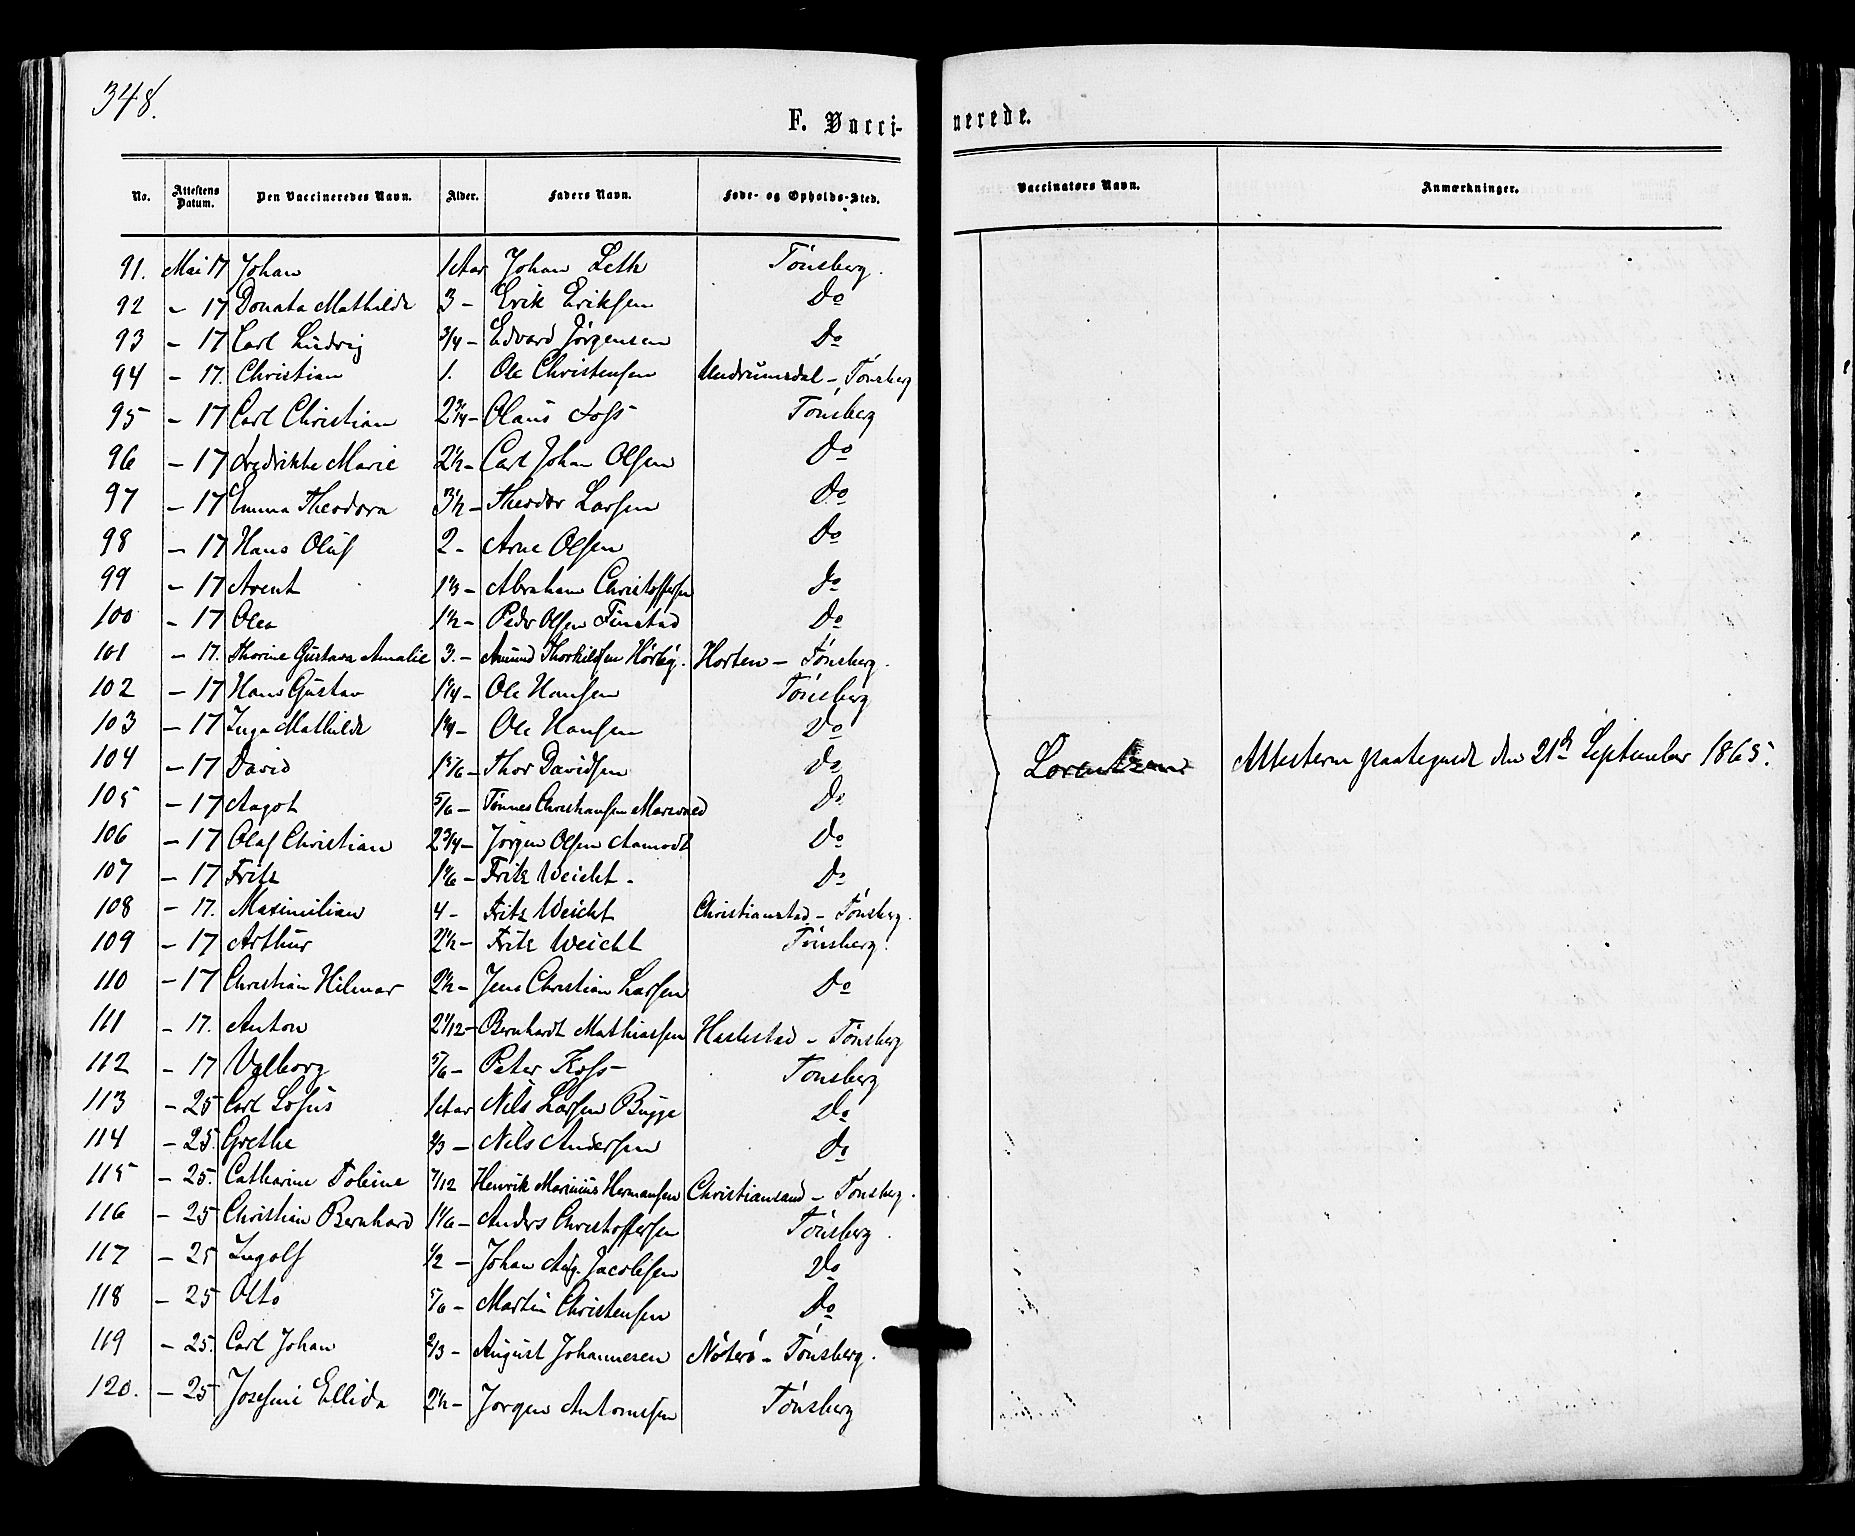 348.
F. Vacci-
nerede.
No. Attestens Datum. Den Vaccineredes Navn. Alder. Faders Navn. Føde- og Opholds-Sted. Vaccinators Navn. Anmærkninger.
91. Mai 17 Johan 1 Aar Johan Leth Tönsberg.
92 - 17 Donata Mathilde 3 - Erik Eriksen Do
93 - 17 Carl Ludvig 3/4 - Edvard Jörgensen Do
94 - 17. Christian 1. Ole Christensen Undrumsdal - Tönsberg
95 - 17 Carl Christian 2 3/4 - Olaus Foss Tönsberg
96 - 17 Fredrikke Marie 2 1/2 - Carl Johan Olsen Do
97 - 17 Emma Theodora 3 1/2 - Theodor Larsen Do
98 - 17 Hans Oluf 2 - Arne Olsen Do
99 - 17 Arent 1 1/3 - Abraham Christoffersen Do
100 - 17 Olea 1 1/2 - Peder Olsen Finstad Do
101 - 17. Thorine Gustava Amalie 3. - Amund Thorkildsen Hörbÿ. Horten - Tönsberg.
102 - 17 Hans Gustav 1 1/4 - Ole Hansen Tönsberg
103 - 17 Inga Mathilde 1 1/4 - Ole Hansen Do
104 - 17 David 1 5/6 - Thor Davidsen Do
105 - 17 Aagot 5/6 - Tönnes Christiansen Do
106 - 17 Olaf Christian 2 3/4 - Jörgen Olsen Aamodt Do
107 - 17 Fritz 1 1/6 - Fritz Weicht - Do
108 - 17. Maximilian 4 - Fritz Weicht Christianstad - Tönsberg.
109 - 17 Arthur 2 1/2 - Fritz Weicht Tönsberg.
110 - 17 Christian Hilmar 2 1/2 - Jens Christian Larsen Do
111 - 17. Anton 2 1/12 - Bernhardt Mathiassen Haslestad - Tönsberg
112 - 17 Valborg 5/6 - Peter Foss - Tönsberg
113 - 25 Carl Lofus 1 Aar Nils Larsen Bugge Do
114 - 25. Grethe 2/3 - Nils Andersen Do
115 - 25. Catharine Tobine 7/12 Henrik Marinius Hermansen Christiansand - Tönsberg.
116 - 25 Christian Bernhard 1 1/6 - Anders Christoffersen Tönsberg.
117 - 25 Ingolf 1/2 - Johan Aug. Jacobsen Do
118 - 25 Otto 5/6 - Martin Christensen Do
119 - 25. Carl Johan 2/3 - August Johannesen Nöterö - Tönsberg.
120. - 25 Josefine Ellida 2 1/2 - Jörgen Antonsen Tönsberg
Lorentzen Attesterne paategnede den 21de September 1865.